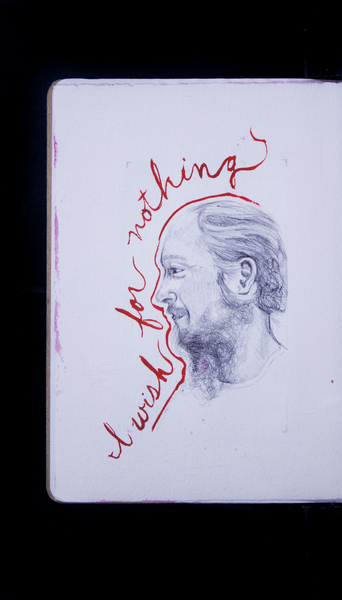 I wish for nothing